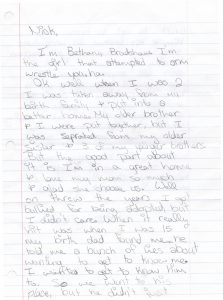 Nick,
I'm Bethany Bradshaw I'm
the girl that attempted to arm
wrestle you. haha
Ok well when I was 2
I was taken away from my
birth family & put into a
better home. My older brother
& I were put together, but I
was seprated from my older
sister & 3 of my younger brothers
But the good part about
it is I'm in a great home
& I love my mom so much
& glad she choose us. Well
on threw the years I got
bullied for being adopted but
I didn't care. When it really
hit was when I was 15
my birth dad found me he
told me a bunch of lies about
wanting to get to know me
I wanted to get to know him
to, so we went to his
place, but he didn't just